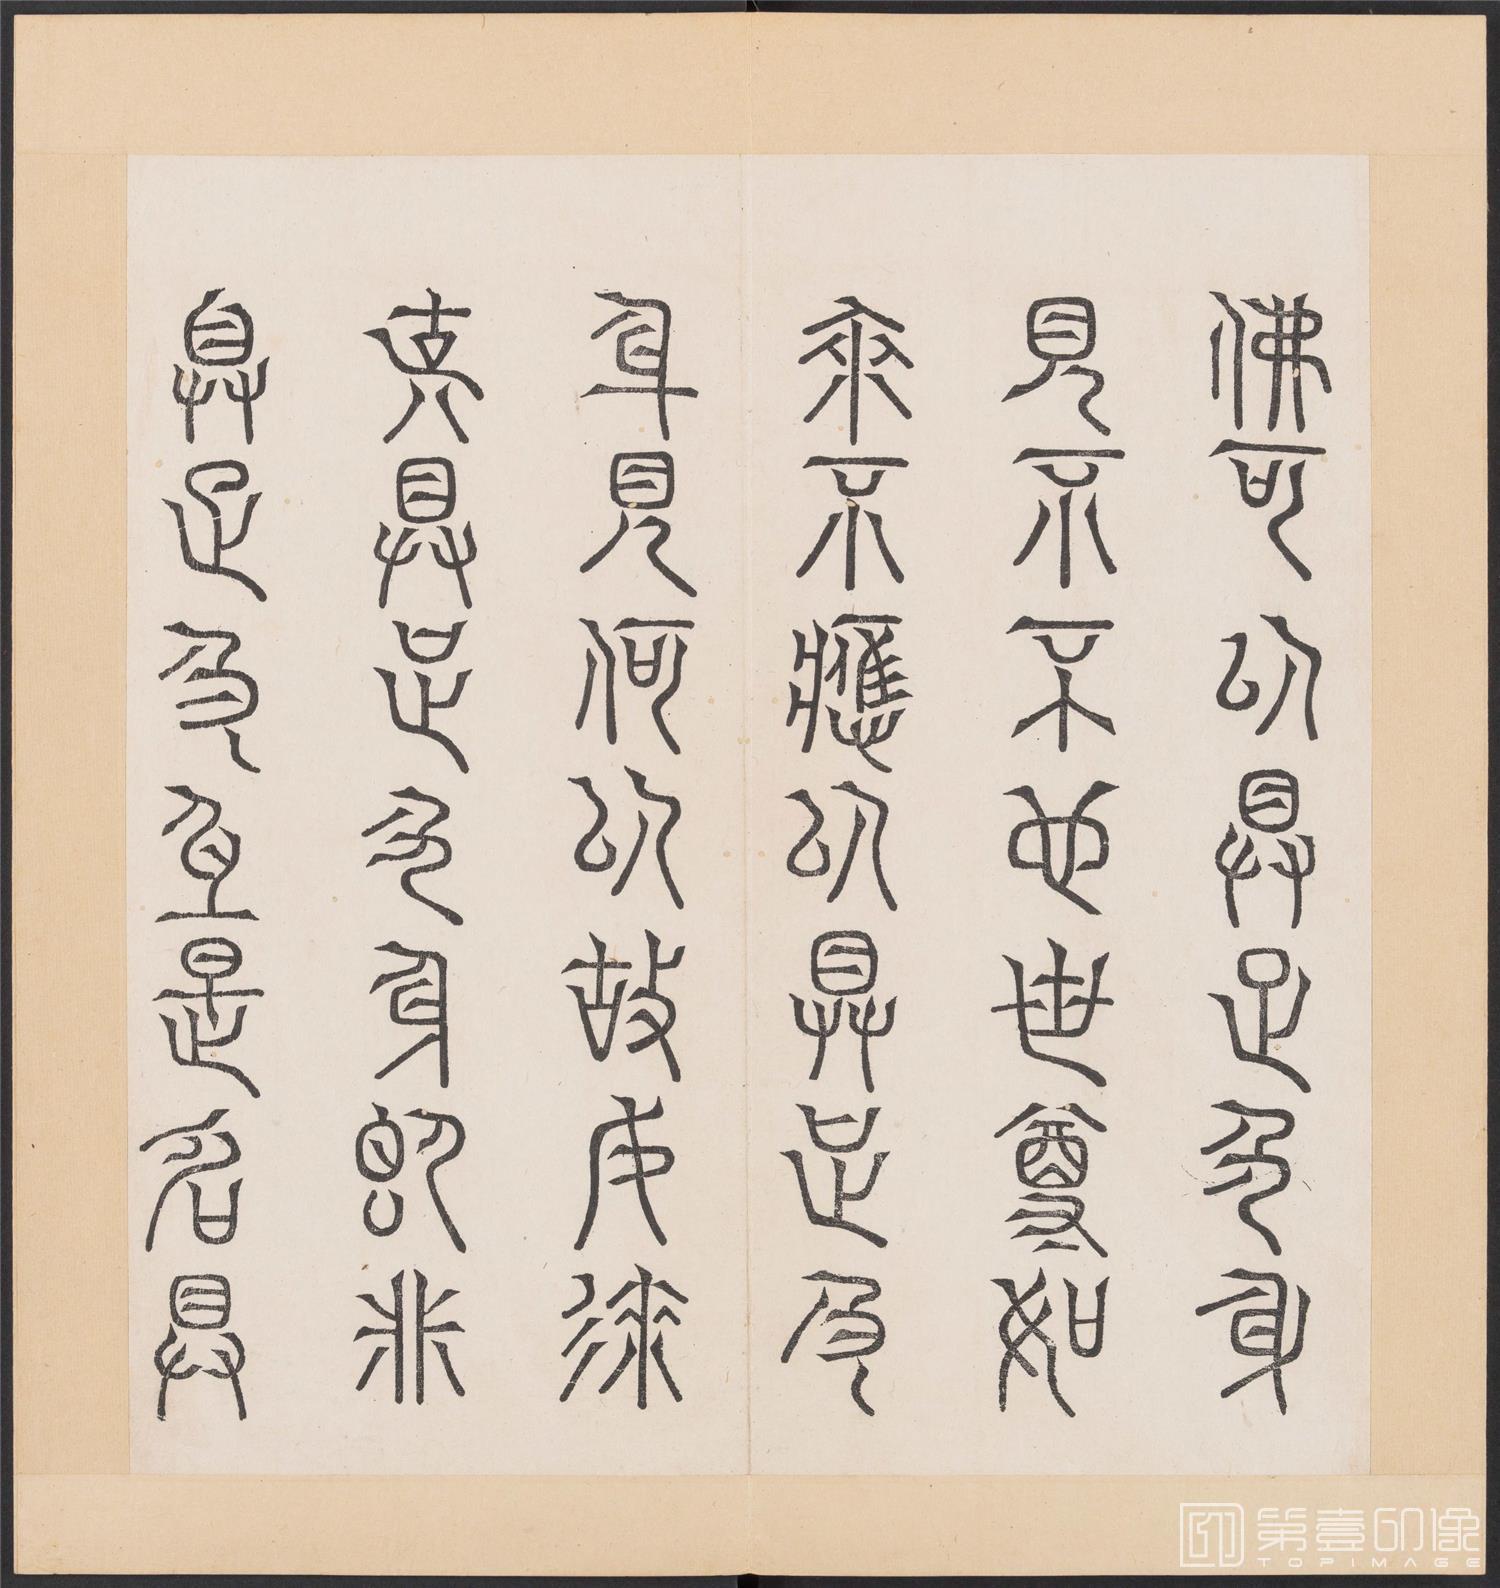 佛可以具足色身
見不不也世尊如
來不應以具足色
身見何以故如來
說具足色身即非
具足色身是名具
第壹印像
TOPIMAGE